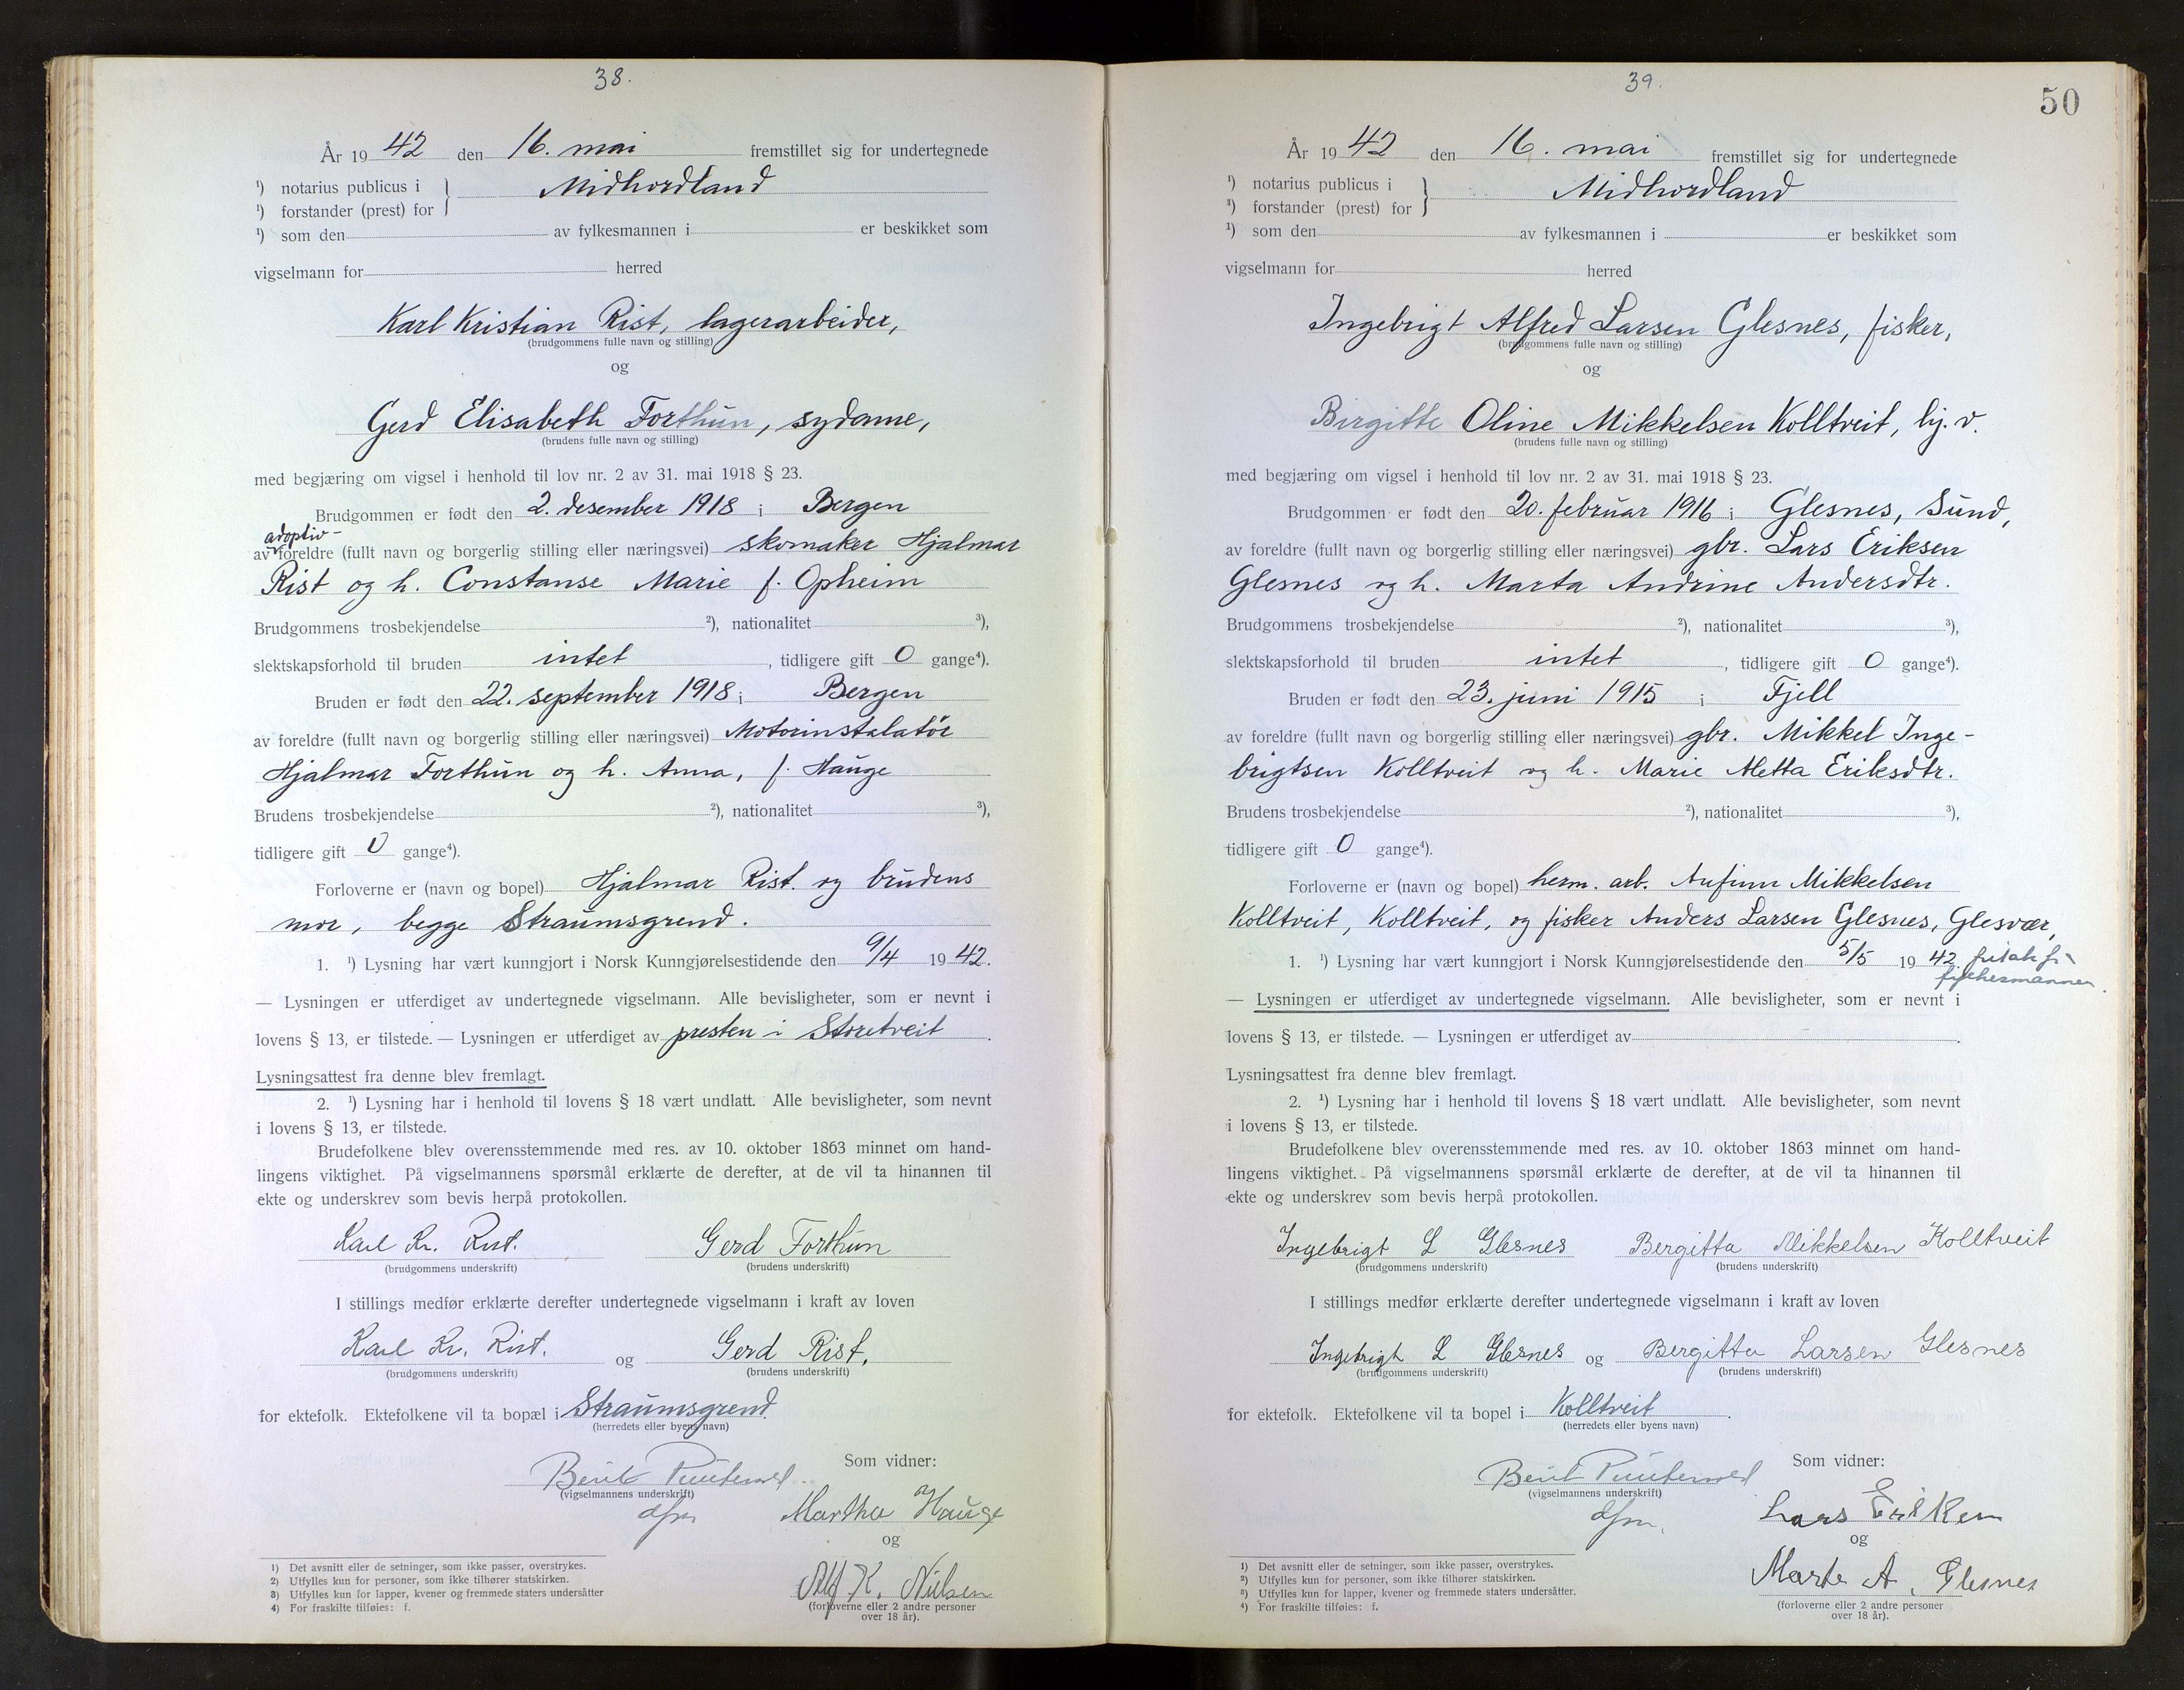 38.
År 19 42 den 16. mai fremstillet sig for undertegnede
¹) notarius publicus i
Midhordland
¹) forstander (prest) for
¹) som den av fylkesmannen i er beskikket som
vigselmann for herred
Karl Kristian Rist, lagerarbeider,
(brudgommens fulle navn og stilling)
og
Gerd Elisabeth Forthun, sydame,
(brudens fulle navn og stilling)
med begjæring om vigsel i henhold til lov nr. 2 av 31. mai 1918 § 23.
Brudgommen er født den 2. desember 1918 i Bergen
adoptiv-
av foreldre (fullt navn og borgerlig stilling eller næringsvei) skomaker Hjalmar
Rist og h. Constanse Marie f. Opheim
Brudgommens trosbekjendelse ²), nationalitet ³),
slektskapsforhold til bruden intet , tidligere gift 0 gange⁴).
Bruden er født den 22. september 1918 i Bergen
av foreldre (fullt navn og borgerlig stilling eller næringsvei) Motorinstalatör
Hjalmar Forthun og h. Anna, f. Hauge
Brudens trosbekjendelse ²), nationalitet ³),
tidligere gift 0 gange⁴).
Forloverne er (navn og bopel) Hjalmar Rist. og brudens
mor, begge Straumsgrend.
1. ¹) Lysning har vært kunngjort i Norsk Kunngjørelsestidende den 9/4 19 42.
— Lysningen er utferdiget av undertegnede vigselmann. Alle bevisligheter, som er nevnt i
lovens § 13, er tilstede. — Lysningen er utferdiget av presten i Storetveit .
Lysningsattest fra denne blev fremlagt.
2. ¹) Lysning har i henhold til lovens § 18 vært undlatt. Alle bevisligheter, som nevnt
i lovens § 13, er tilstede.
Brudefolkene blev overensstemmende med res. av 10. oktober 1863 minnet om hand-
lingens viktighet. På vigselmannens spørsmål erklærte de derefter, at de vil ta hinannen til
ekte og underskrev som bevis herpå protokollen.
Karl Kr. Rist. Gerd Forthun
(brudgommens underskrift) (brudens underskrift)
I stillings medfør erklærte derefter undertegnede vigselmann i kraft av loven
Karl Kr. Rist. og Gerd Rist.
(brudgommens underskrift) (brudens underskrift)
for ektefolk. Ektefolkene vil ta bopæl i Straumsgrend.
(herredets eller byens navn)
Som vidner:
Berit
(vigselmannens underskrift)
dfm
Martha Hauge
og
Alf K. Nilsen
(forloverne eller 2 andre personer
over 18 år).
1) Det avsnitt eller de setninger, som ikke passer, overstrykes.
2) Utfylles kun for personer, som ikke tilhører statskirken.
3) Utfylles kun for lapper, kvener og fremmede staters undersåtter
4) For fraskilte tilføies: f.
39.
50
År 19 42 den 16. mai fremstillet sig for undertegnede
¹) notarius publicus i
Midhordland
¹) forstander (prest) for
¹) som den av fylkesmannen i er beskikket som
vigselmann for herred
Ingebrigt Alfred Larsen Glesnes, fisker,
(brudgommens fulle navn og stilling)
og
Birgitte Oline Mikkelsen Kolltveit, hj. v.
(brudens fulle navn og stilling)
med begjæring om vigsel i henhold til lov nr. 2 av 31. mai 1918 § 23.
Brudgommen er født den 20. februar 1916 i Glesnes, Sund,
av foreldre (fullt navn og borgerlig stilling eller næringsvei) gbr. Lars Eriksen
Glesnes og h. Marta Andrine Andersdtr.
Brudgommens trosbekjendelse ²), nationalitet ³),
slektskapsforhold til bruden intet , tidligere gift 0 gange⁴).
Bruden er født den 23. juni 1915 i Fjell
av foreldre (fullt navn og borgerlig stilling eller næringsvei) gbr. Mikkel Inge-
brigtsen Kolltveit og h. Marie Aletta Eriksdtr.
Brudens trosbekjendelse ²), nationalitet ³),
tidligere gift 0 gange⁴).
Forloverne er (navn og bopel) herm. arb. Anfinn Mikkelsen
Kolltveit, Kolltveit, og fisker Anders Larsen Glesnes, Glesvær,
1. ¹) Lysning har vært kunngjort i Norsk Kunngjørelsestidende den 5/5 19 42
fylkesmannen.
— Lysningen er utferdiget av undertegnede vigselmann. Alle bevisligheter, som er nevnt i
lovens § 13, er tilstede. — Lysningen er utferdiget av .
Lysningsattest fra denne blev fremlagt.
2. ¹) Lysning har i henhold til lovens § 18 vært undlatt. Alle bevisligheter, som nevnt
i lovens § 13, er tilstede.
Brudefolkene blev overensstemmende med res. av 10. oktober 1863 minnet om hand-
lingens viktighet. På vigselmannens spørsmål erklærte de derefter, at de vil ta hinannen til
ekte og underskrev som bevis herpå protokollen.
Ingebrigt L Glesnes Bergitta Mikkelsen Kolltveit
(brudgommens underskrift) (brudens underskrift)
I stillings medfør erklærte derefter undertegnede vigselmann i kraft av loven
Ingebrigt L Glesnes og Bergitta Larsen Glesnes
(brudgommens underskrift) (brudens underskrift)
for ektefolk. Ektefolkene vil ta bopel i Kolltveit .
(herredets eller byens navn)
Som vidner:
Berit
(vigselmannens underskrift)
dfm.
Lars Eriksen
og
Marta A. Glesnes
(forloverne eller 2 andre personer
over 18 år).
1) Det avsnitt eller de setninger, som ikke passer, overstrykes.
2) Utfylles kun for personer, som ikke tilhører statskirken.
3) Utfylles kun for lapper, kvener og fremmede staters undersåtter.
4) For fraskilte tilføies: f.